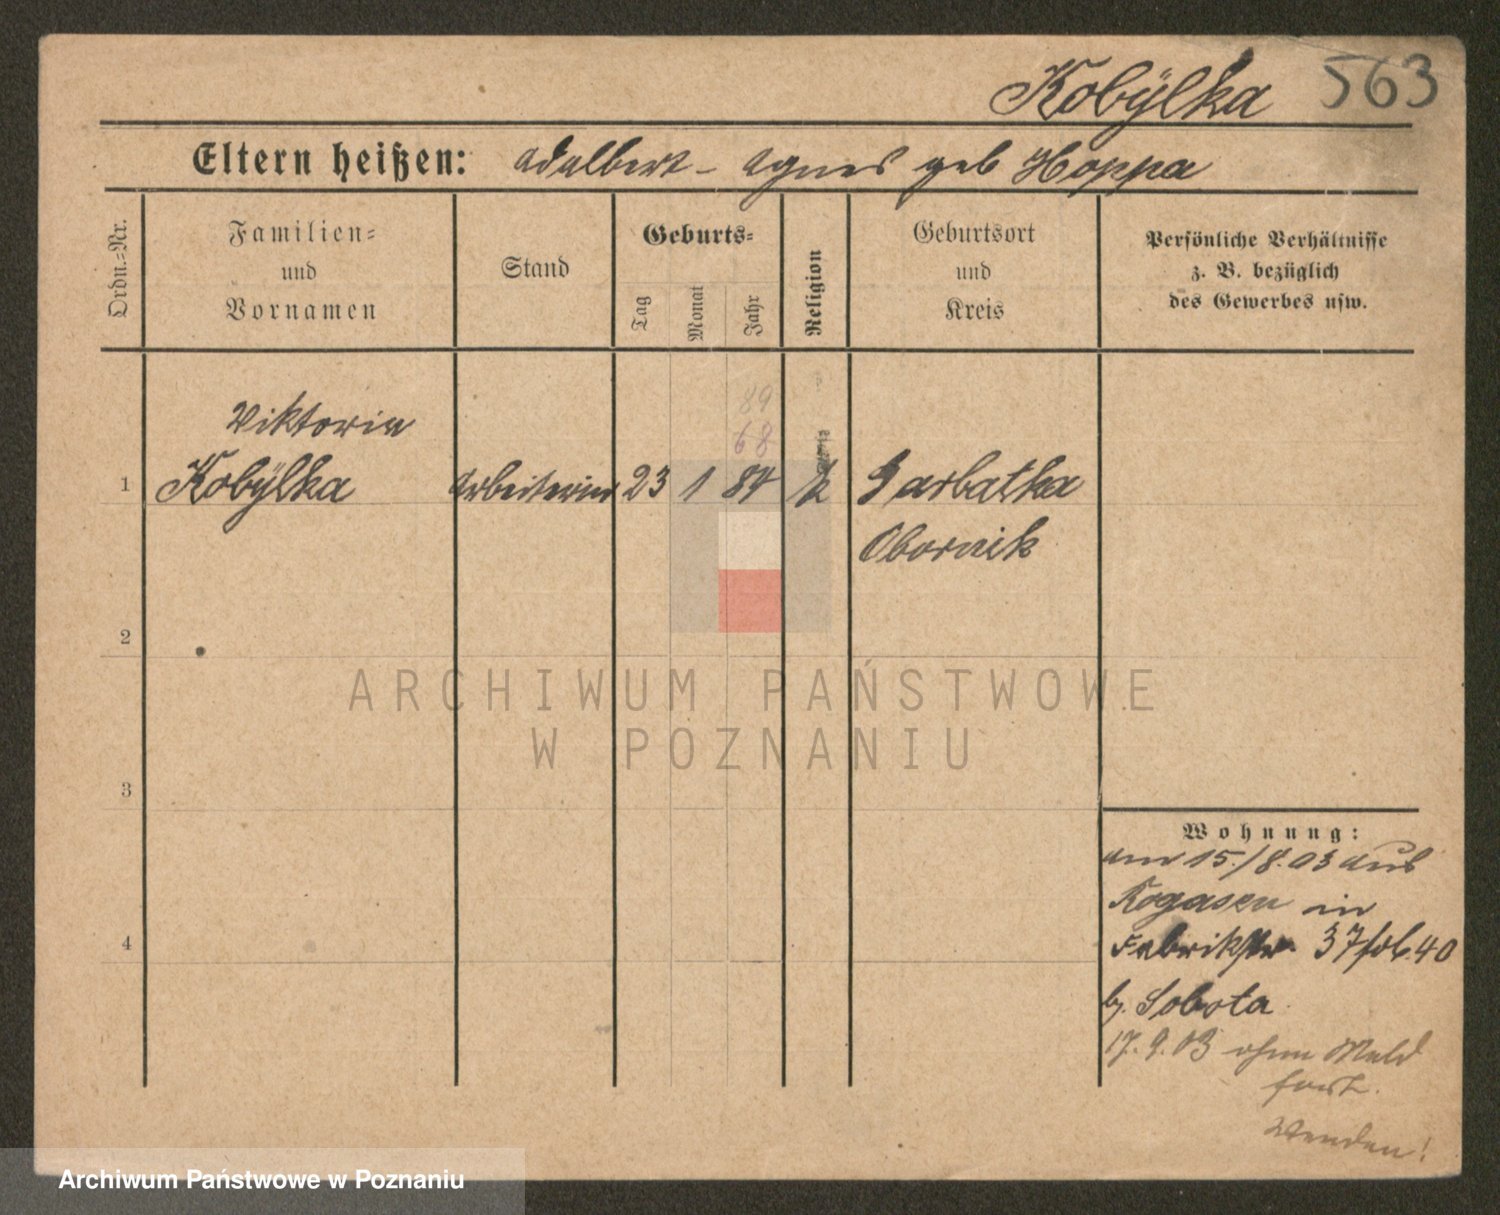 Kobÿlka 563
Eltern heißen: Adalbert - Agnes geb Hoppa
Ordn.-Nr.
Familien- und Vornamen
Stand
Geburts-
Tag
Monat
Jahr
Religion
Geburtsort und Kreis
Persönliche Verhältnisse
z. B. bezüglich
des Gewerbes usw.
89
68
Viktoria
1 Kobÿlka Arbeiterin 23 1 84 k Garbatka
Obornik
2
3
4
ARCHIWUM PAŃSTWOWE
W POZNANIU
Wohnung:
am 15./8.03 aus
Rogasen in
Fabrikstr. 37 40
b. Sobota
17.9.03 ohne Meld
fort.
Wenden!
Archiwum Państwowe w Poznaniu